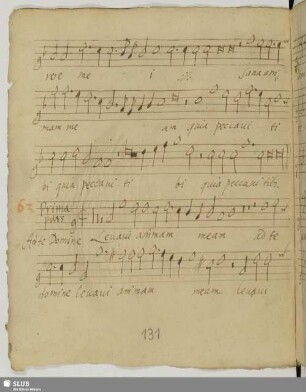 rere me i
mam me am quia peccavi ti
bi quia peccavi ti bi quia peccavi tibi.
62 Prima pars
Ad te Domine Levavi animam meam ad te
domine levavi animam meam levavi
131
SLUB